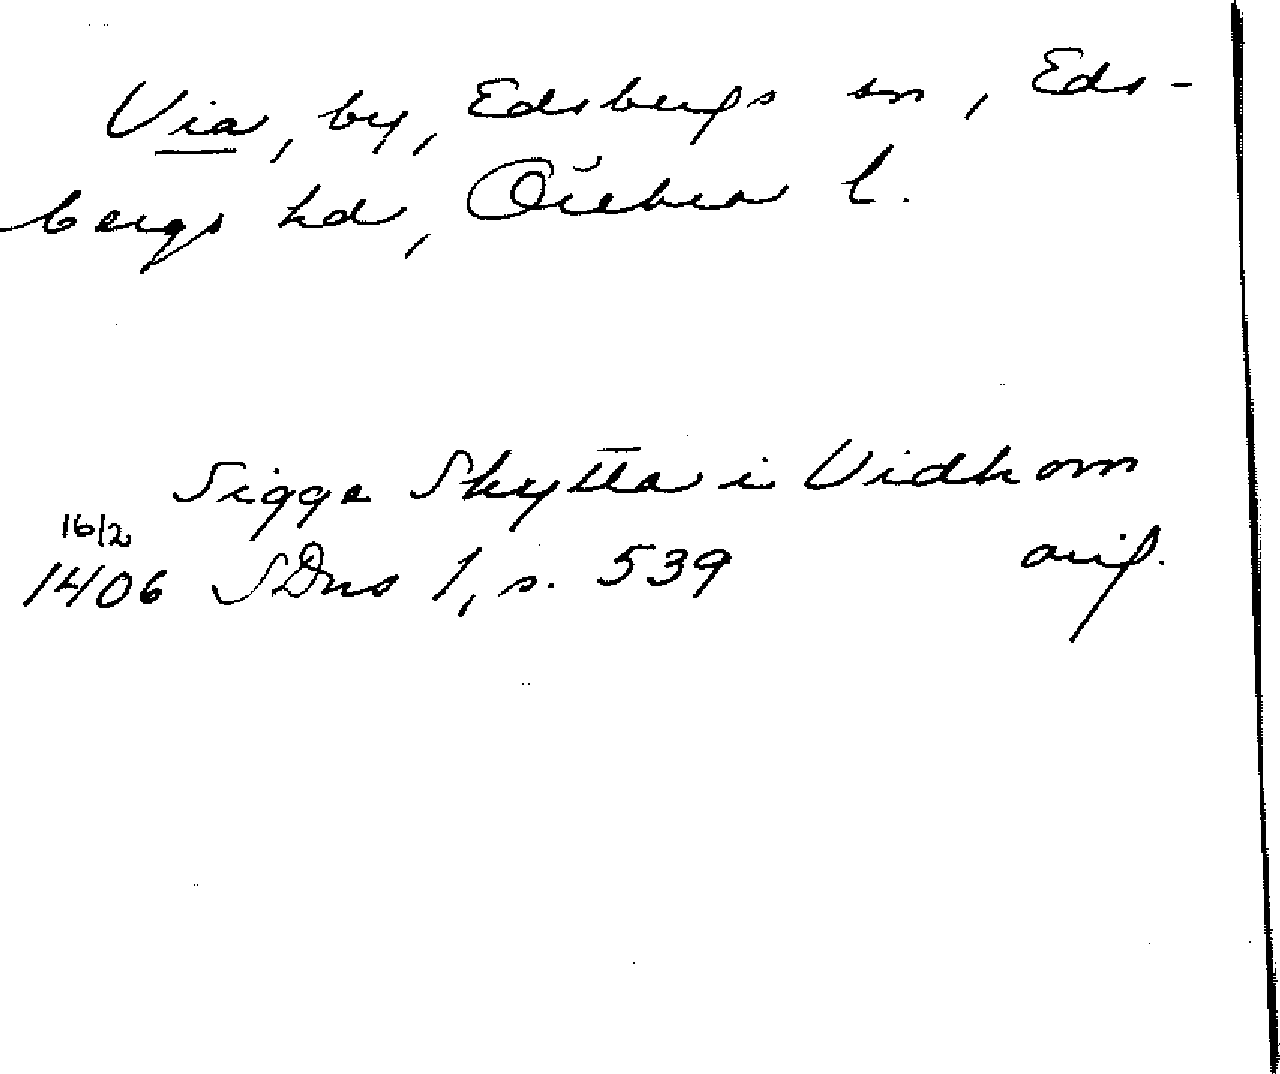 Via, by, Edsbergs sn, Eds-
bergs hd, Örebro l.
Sigge Skytta i Vidhom
16/2
1406 SDns 1, s. 539 orig.